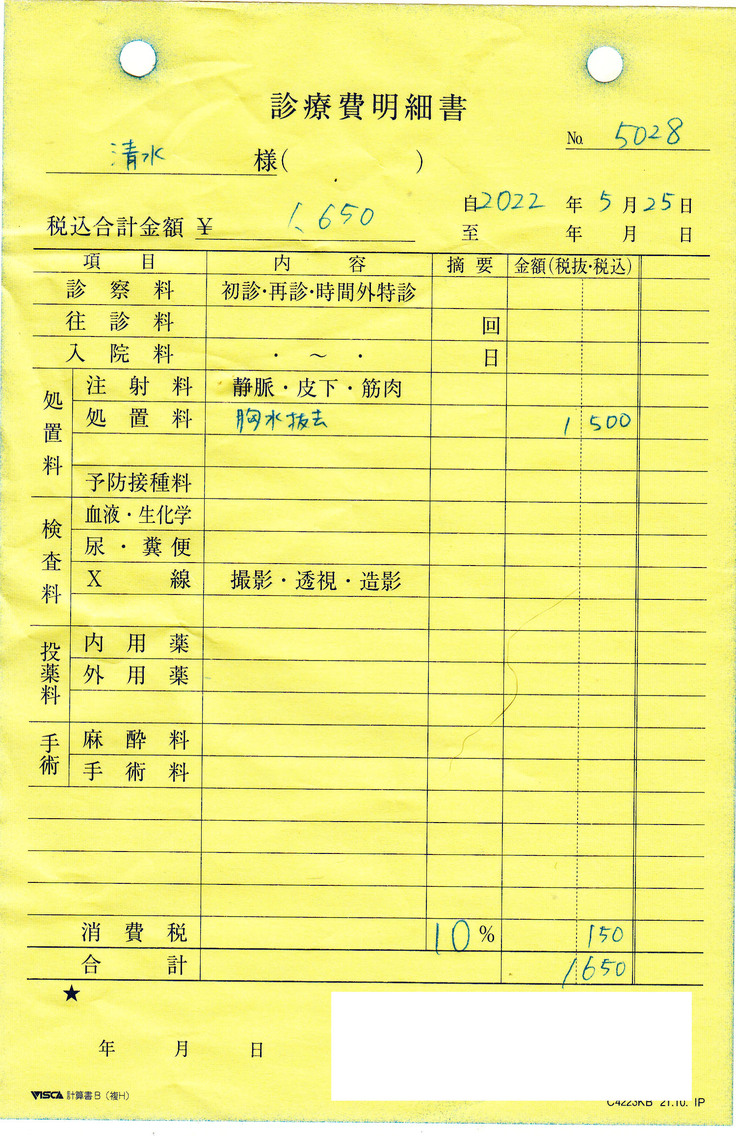 診療費明細書
№ 5028
清水 様( )
自2022年5月25日
税込合計金額 ¥ 1,650
至 年 月 日
項目 内容 摘要 金額(税抜・税込)
診察料 初診・再診・時間外特診
往診料 回
入院料 ・ ～ ・ 日
処置料
注射料 静脈・皮下・筋肉
処置料 胸水抜去 1 500
予防接種料
検査料
血液・生化学
尿・糞便
X線 撮影・透視・造影
投薬料
内用薬
外用薬
手術
麻酔料
手術料
消費税 10% 150
合計 1650
★
年 月 日
VISCA 計算書B(複H)
C4223KB 21.10. IP